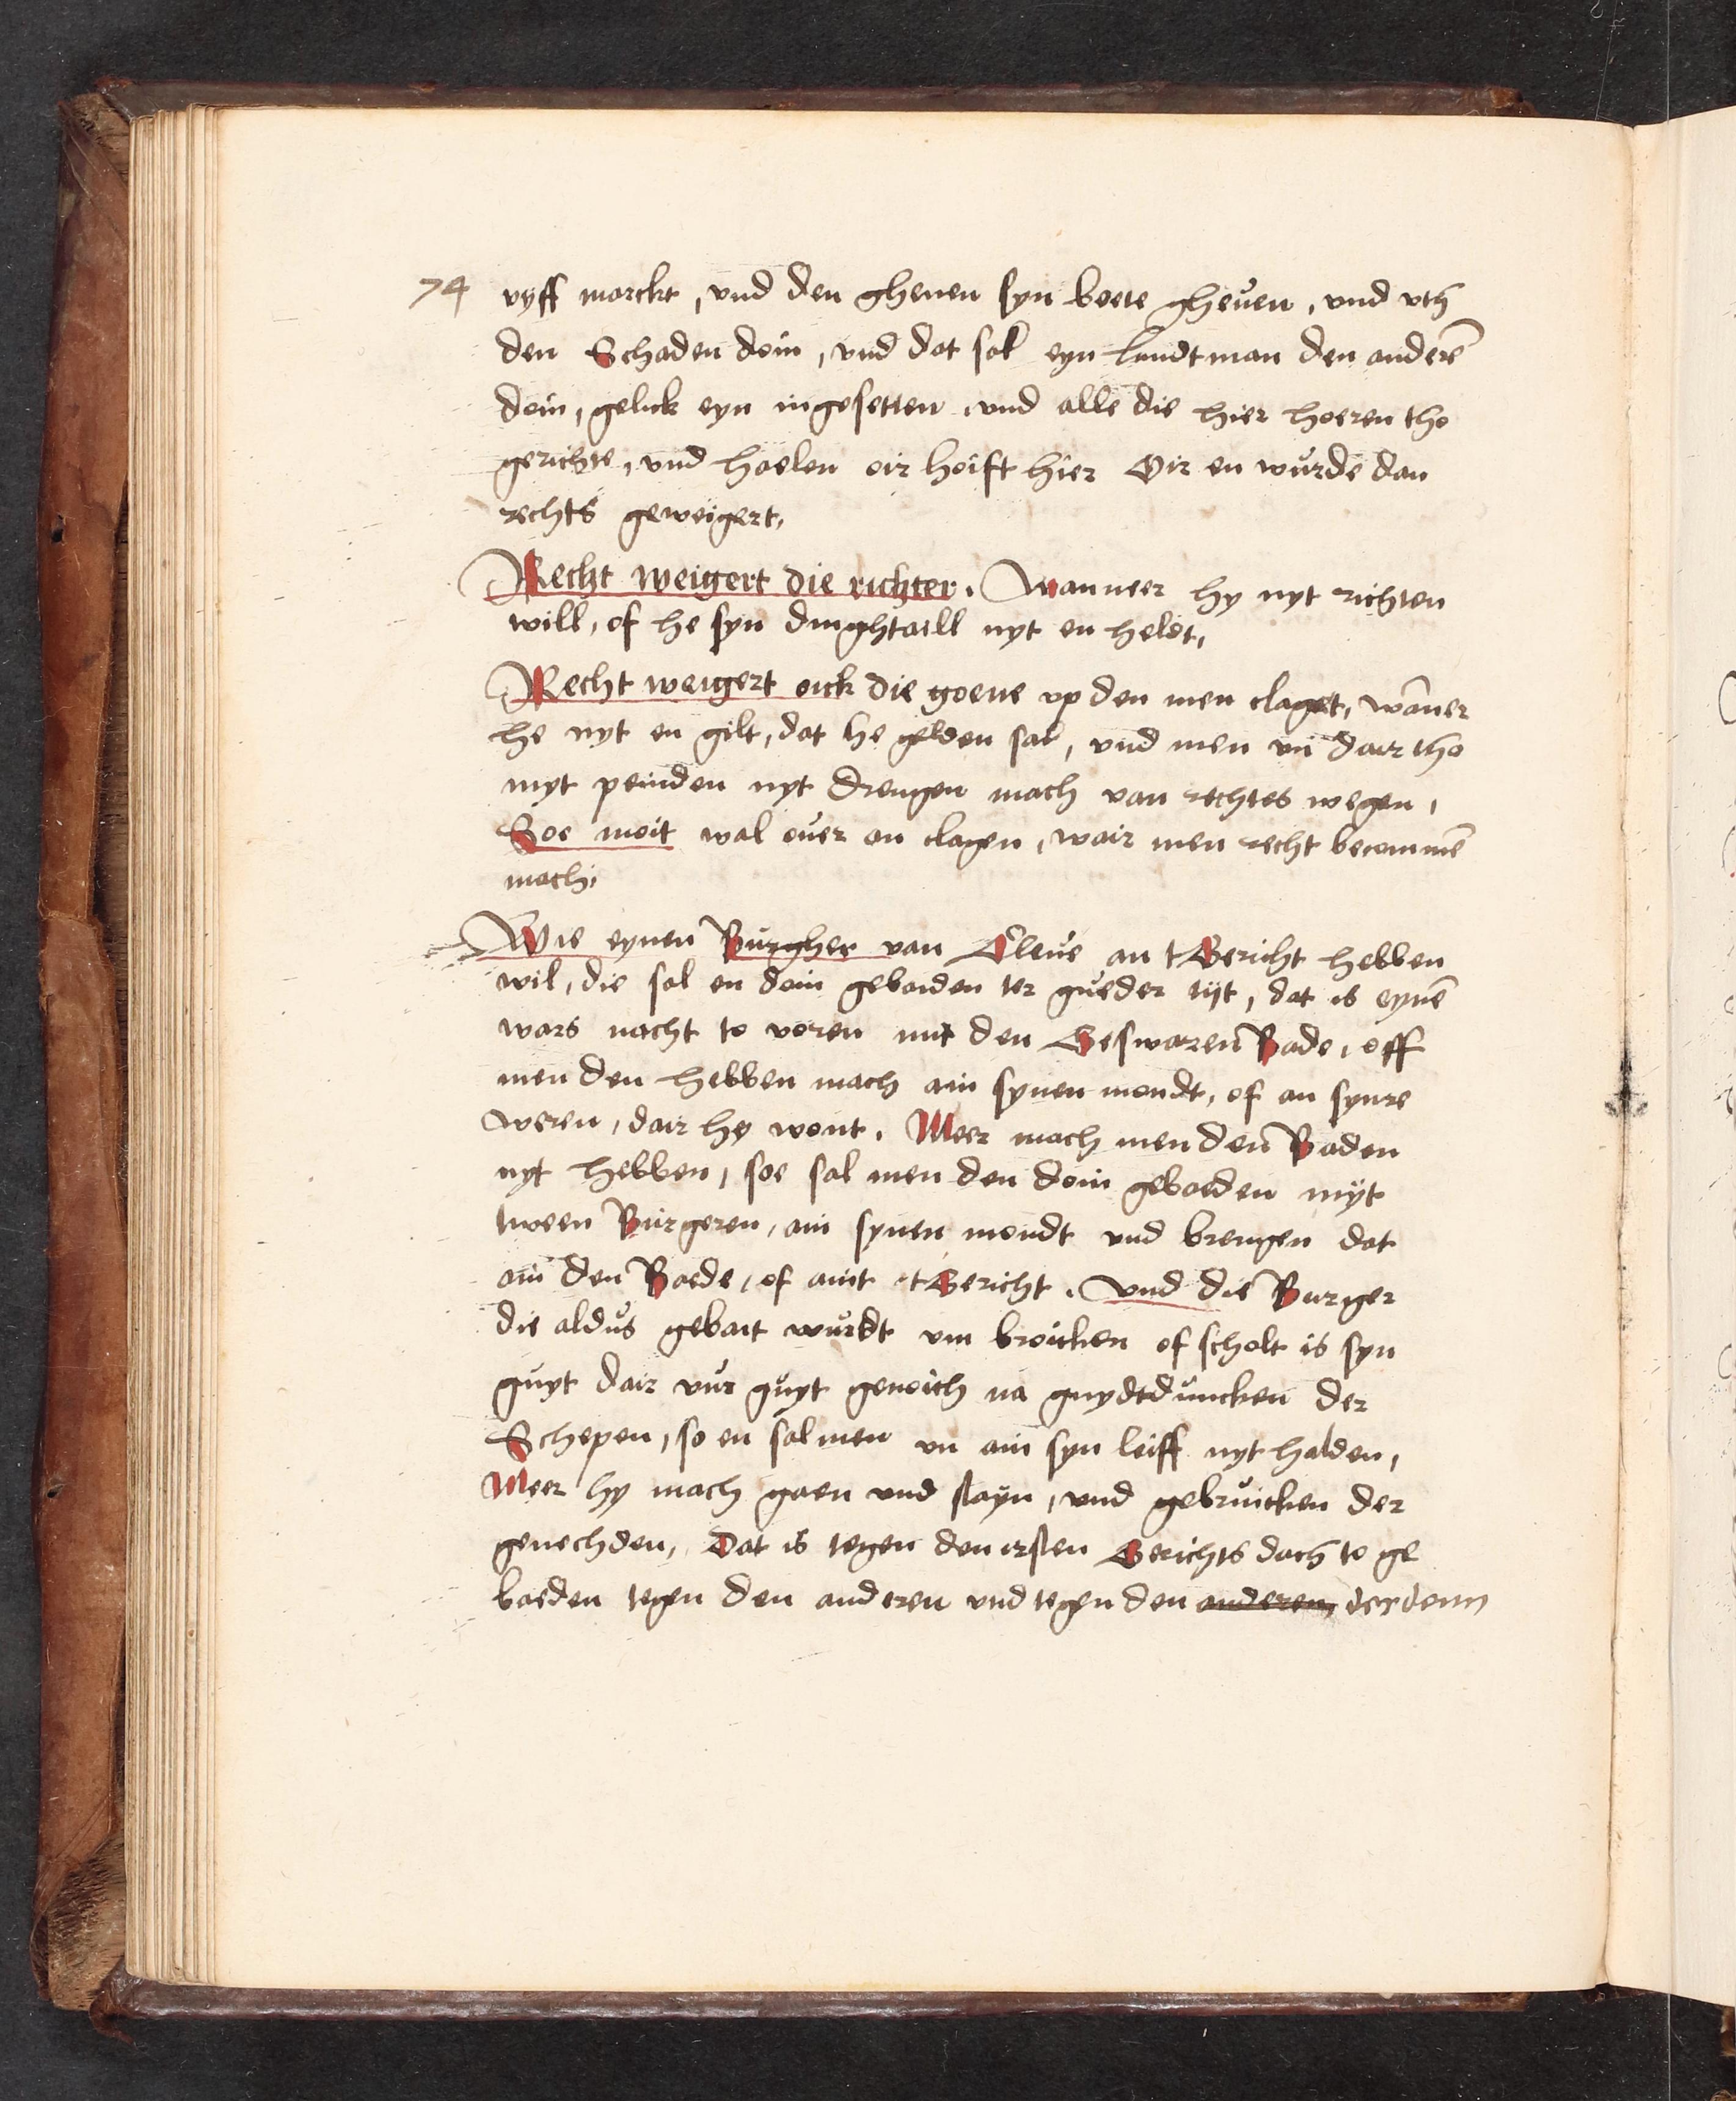 74 vyff marckt, vnd den ghenen syn boete gheuen, vnd vth
den Schaden doin, vnd dat sal eyn landtman den anderē
doin, gelick eyn ingesetten, vnd alle die hier hoeren tho
gerichte, vnd haelen oir hoift hier Oir en wurde dan
rechts geweigert,
Recht weigert die richter. Wanneer hy nyt richten
will, of he syn dinghtaill nyt en heldt,
Recht weigert oick die goene vp den men claget, wāner
he nyt en gilt, dat he gelden sal, vnd men vn dair tho
myt peinden nyt drengen mach van rechtes wegen,
Soe moit wal ouer an clagen, wair men recht becommē
mach.
Wie eynen Burgher van Cleue an t Gericht hebben
wil, die sal en doin gebaiden ter gueder tijt, dat is eynē
wars nacht to voren mit den Geswaren Bade, off
men den hebben mach ain synen mondt, of an synre
weren, dair he wont. Meer mach men den Baden
nyt hebben, soe sal men den doin gebaeden myt
tween Burgeren, ain synen mondt vnd brengen dat
ain den Baede, of aint t Gericht. Vnd die Burger
die aldus gebait wurdt vm broicken of scholt is syn
guyt dair vur guyt genoich na guydtduncken der
Schepen, so en sal men vn ain syn leiff nyt halden,
Meer hy mach gaen vnd stayn, vnd gebruicken der
genechden, Dat is tegen den irsten Gerichts dach to ge
baeden tegen den anderen vnd tegen den anderen derdenn